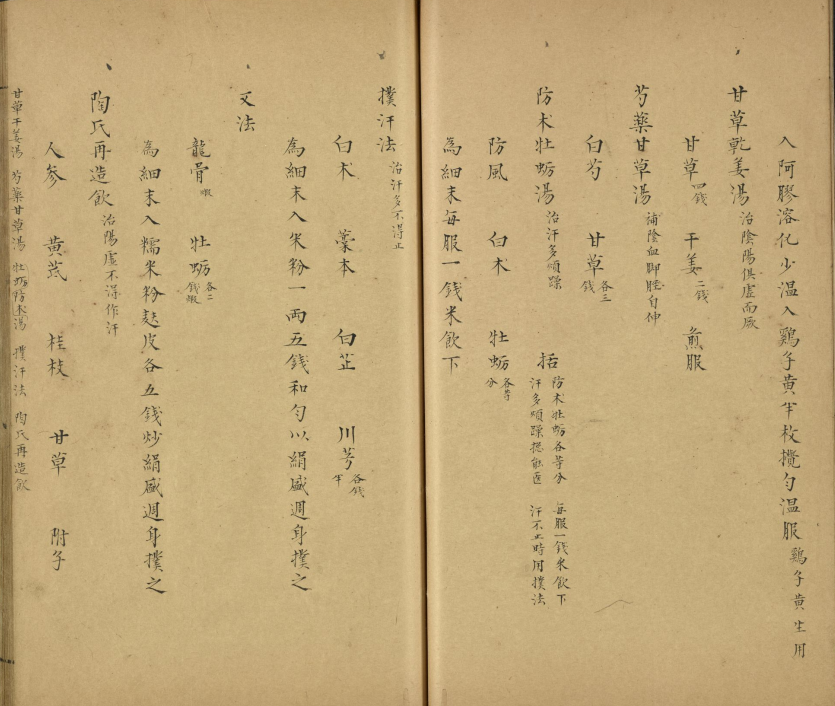 入阿膠溶化少温入鷄子黃半枚攪勻温服 鷄子黃生用
甘草乾姜湯 治陰陽俱虛而厥
甘草 四錢 干姜 二錢 煎服
芍藥甘草湯 補陰血脚脛自伸
白芍 甘草 各三錢
防术牡蛎湯 治汗多煩躁 括 防术牡蛎各等分 每服一錢米飲下
汗多煩躁總能医 汗不止時用撲法
防風 白术 牡蛎 各等分
為細末每服一錢米飲下
撲汗法 治汗多不得止
白术 藁本 白芷 川芎 各錢半
為細末入米粉一兩五錢和勻以絹盛週身撲之
又法
龍骨 煅 牡蛎 各二錢煅
為細末入糯米粉麸皮各五錢炒絹盛週身撲之
陶氏再造飲 治陽虛不得作汗
人參 黃芪 桂枝 甘草 附子
甘草干姜湯 芍藥甘草湯 牡蛎防术湯 撲汗法 陶氏再造飲